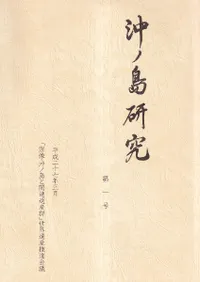 沖ノ島研究
第一号
平成二十七年三月
「宗像・沖ノ島と関連遺産群」世界遺産推進会議